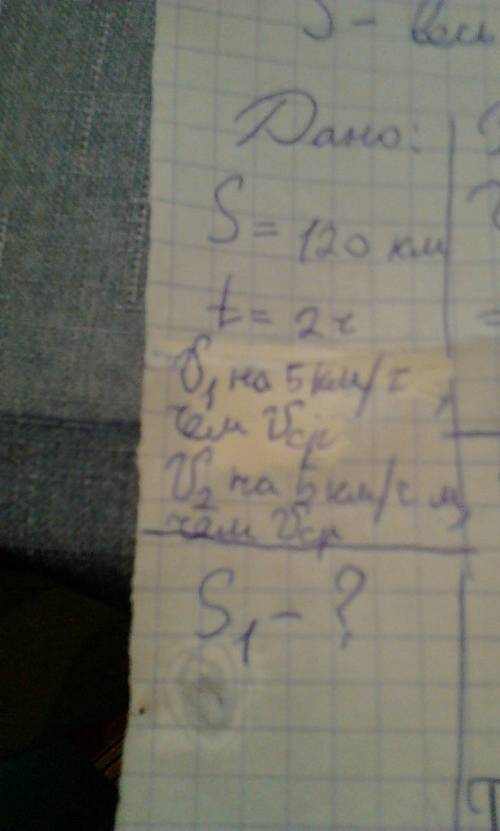 S - весь
Дано:
S = 120 км
t = 2 ч
V₁ на 5 км/ч
чем Vср
V₂ на 5 км/ч м
чем Vср
S₁ - ?